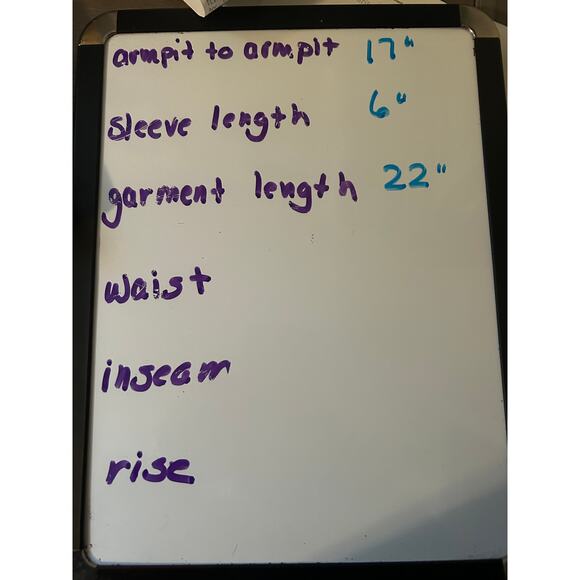 armpit to armpit 17"
sleeve length 6"
garment length 22"
waist
inseam
rise